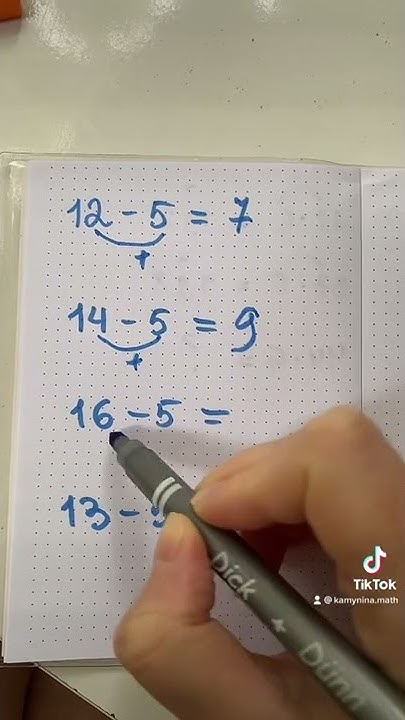 12 - 5 = 7
+
14 - 5 = 9
+
16 - 5 =
13 -
Dick + Dünn
TikTok
@kamynina.math